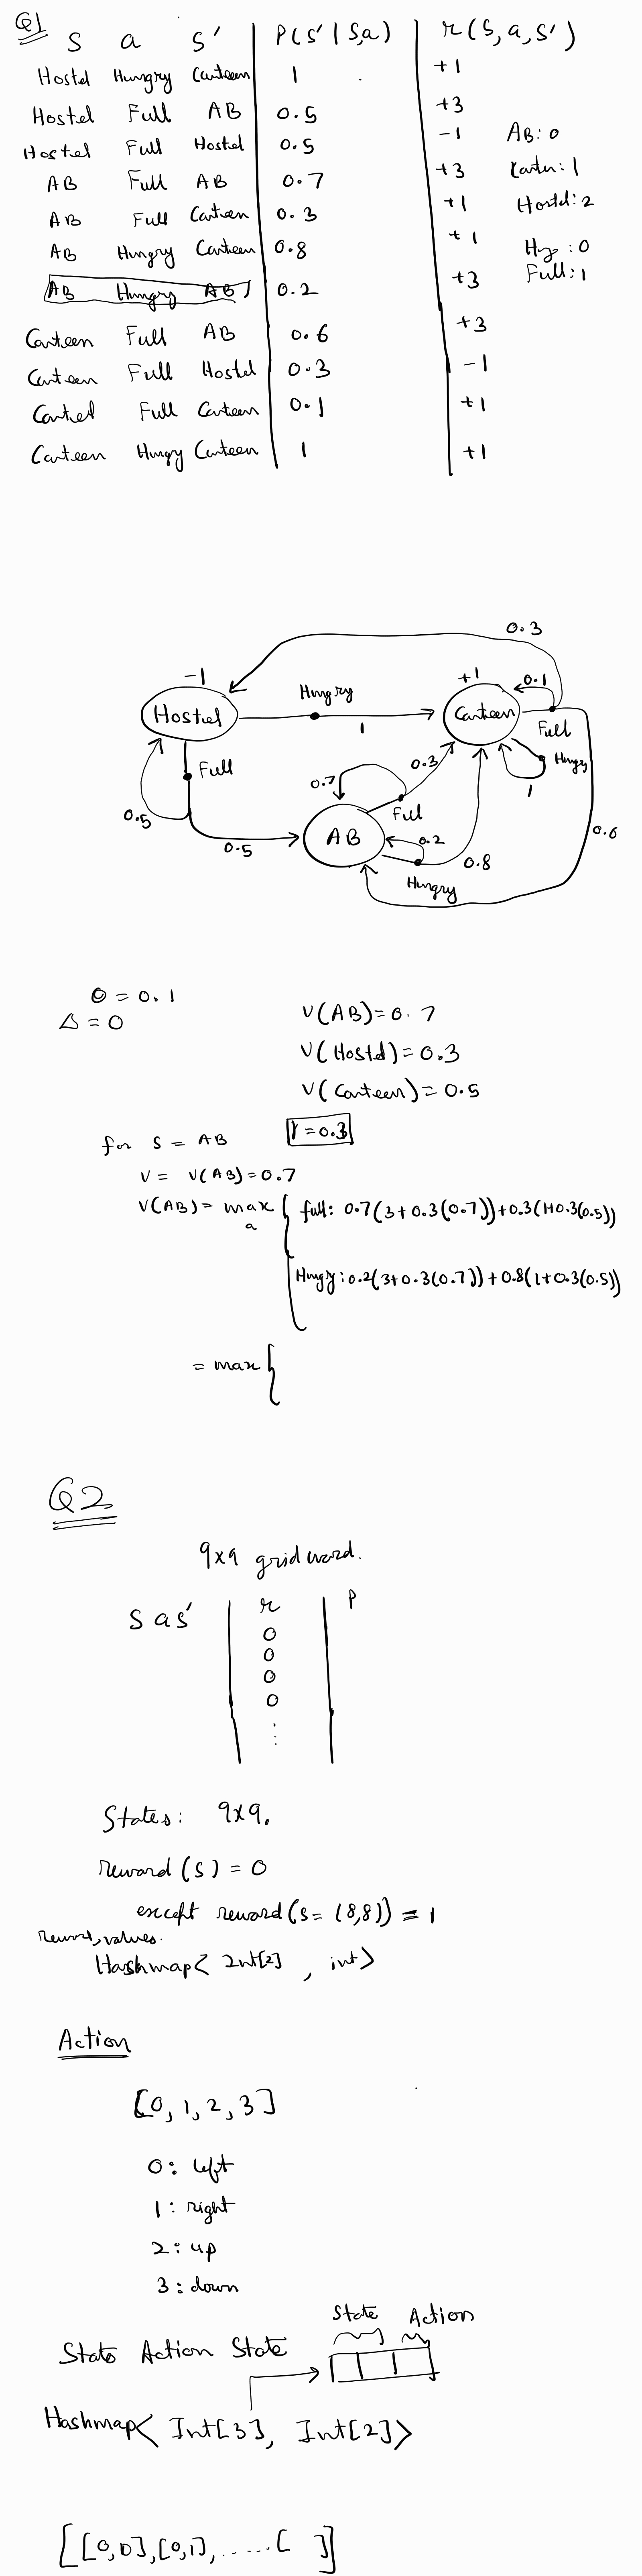 Q1
S a S' P(S' | S,a) r(S, a, S')
Hostel Hungry Canteen 1 +1
Hostel Full AB 0.5 +3
Hostel Full Hostel 0.5 -1
AB Full AB 0.7 +3
AB Full Canteen 0.3 +1
AB Hungry Canteen 0.8 +1
AB Hungry AB 0.2 +3
Canteen Full AB 0.6 +3
Canteen Full Hostel 0.3 -1
Full Canteen 0.1 +1
Canteen Hungry Canteen 1 +1
AB: 0
: 1
Hostel: 2
: 0
Full: 1
0.3
-1
Hostel
Hungry
1
+1
Canteen
0.1
Full
Hungry
1
Full
0.5
0.5
0.7
0.3
Ful
AB
0.2
0.8
Hungry
0.6
θ = 0.1
Δ = 0
V(AB) = 0.7
V(Hostel) = 0.3
V(Canteen) = 0.5
γ = 0.3
for S = AB
V = V(AB) = 0.7
V(AB) = max { full: 0.7(3+0.3(0.7))+0.3(1+0.3(0.5))
a
Hungry: 0.2(3+0.3(0.7))+0.8(1+0.3(0.5))
= max {
Q2
9x9 grid word.
S a s' r P
0
0
0
0
⋮
States: 9x9.
reward(s) = 0
except reward(s = (8,8)) = 1
values.
Hashmap< Int[2] , int>
Action
[0, 1, 2, 3]
0: left
1: right
2: up
3: down
State Action
State Action State
Hashmap< Int[3], Int[2]>
[[0,0],[0,1], ......[ ]]